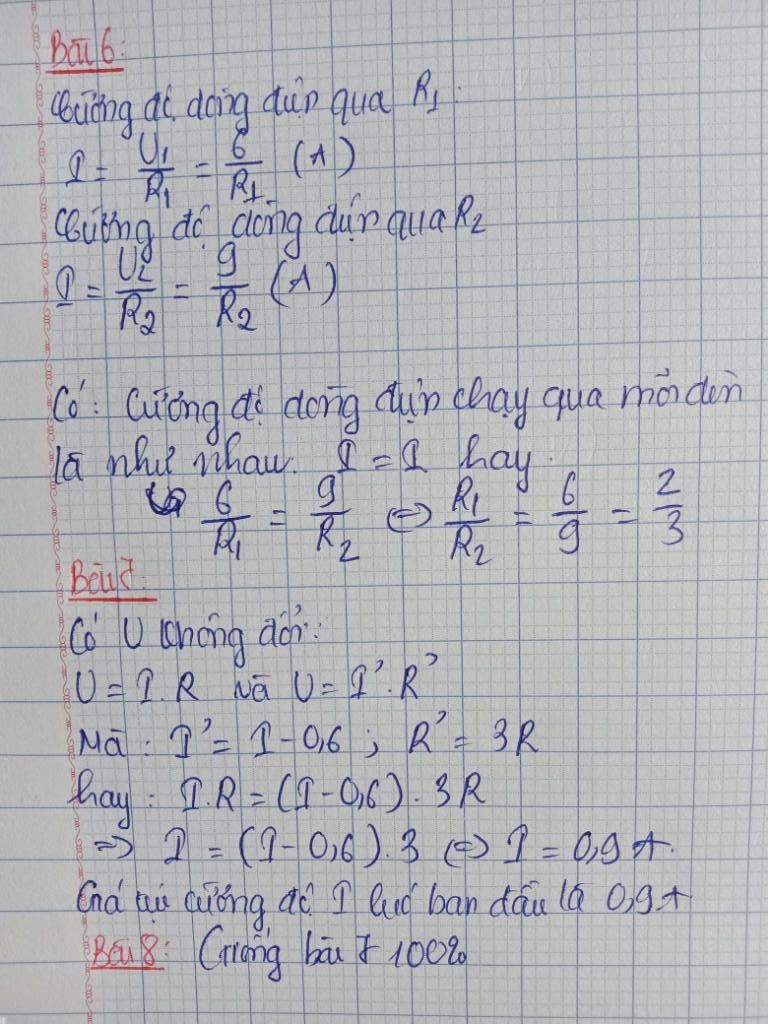 Bài 6:
Cường độ dòng điện qua R₁:
I = U₁/R₁ = 6/R₁ (A)
Cường độ dòng điện qua R₂
I = U₂/R₂ = 9/R₂ (A)
Có: Cường độ dòng điện chạy qua mỗi đèn
là như nhau. I = I hay.
↪ 6/R₁ = 9/R₂ ⇔ R₁/R₂ = 6/9 = 2/3
Bài 7:
Có U không đổi:
U = I.R và U = I'.R'
Mà: I' = I - 0,6 ; R' = 3R
hay: I.R = (I - 0,6).3R
⇒ I = (I - 0,6).3 ⇔ I = 0,9A.
Giá trị cường độ I lúc ban đầu là 0,9A
Bài 8: Giống bài 7 100%